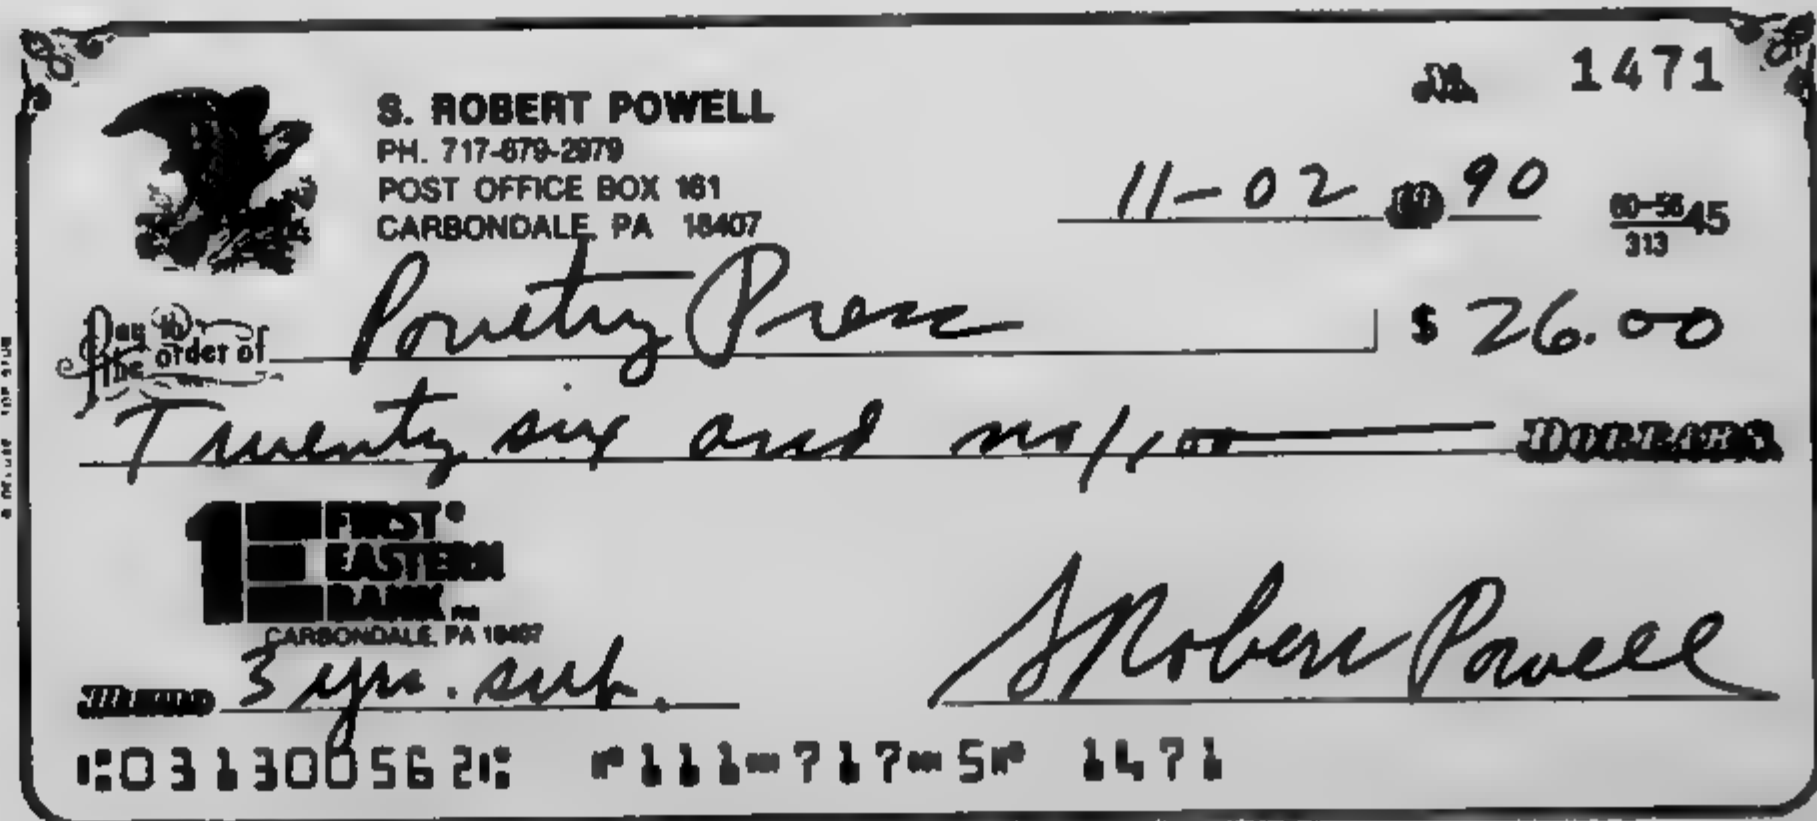 1471
S. ROBERT POWELL
PH. 717-679-2979
POST OFFICE BOX 161
CARBONDALE, PA 18407
11-02 90
60-56 45
313
Pay to the order of Poultry Press $ 26.00
Twenty six and no/100 DOLLARS
1 FIRST
EASTERN
BANK
CARBONDALE, PA 18407
MEMO 3 yr. sub. S Robert Powell
⑆031300562⑆ ⑈111⑉717⑉5⑈ 1471